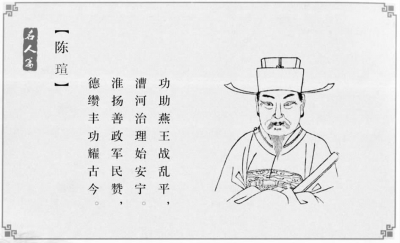 名人篇
【陈瑄】
功助燕王战乱平，
漕河治理始安宁。
淮扬善政军民赞，
德缵丰功耀古今。